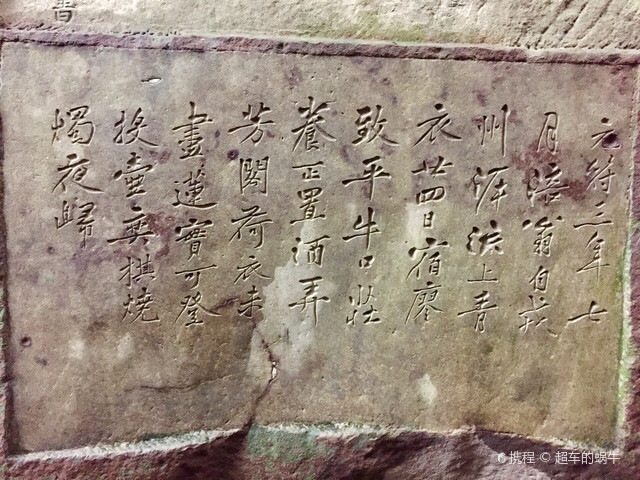 元符三年七
月涪翁自戎
州泝流上青
衣廿四日宿廖
致平牛口莊
養正置酒弄
芳閣荷衣未
盡蓮實可登
投壺奕棋燒
燭夜歸
携程 © 超车的蜗牛